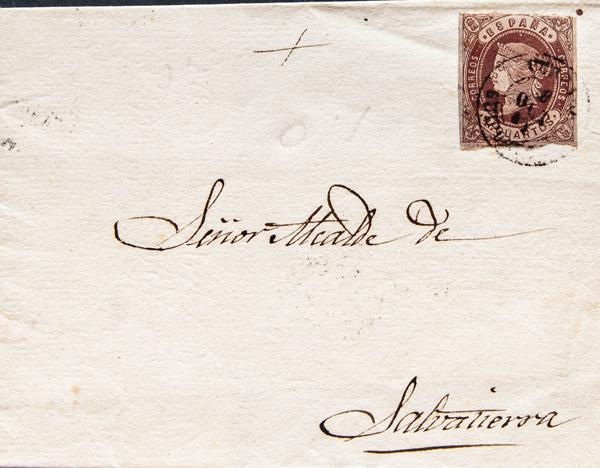 ESPAÑA
CORREOS
CORREOS
CUARTOS
Señor Alcalde de
Salvatierra